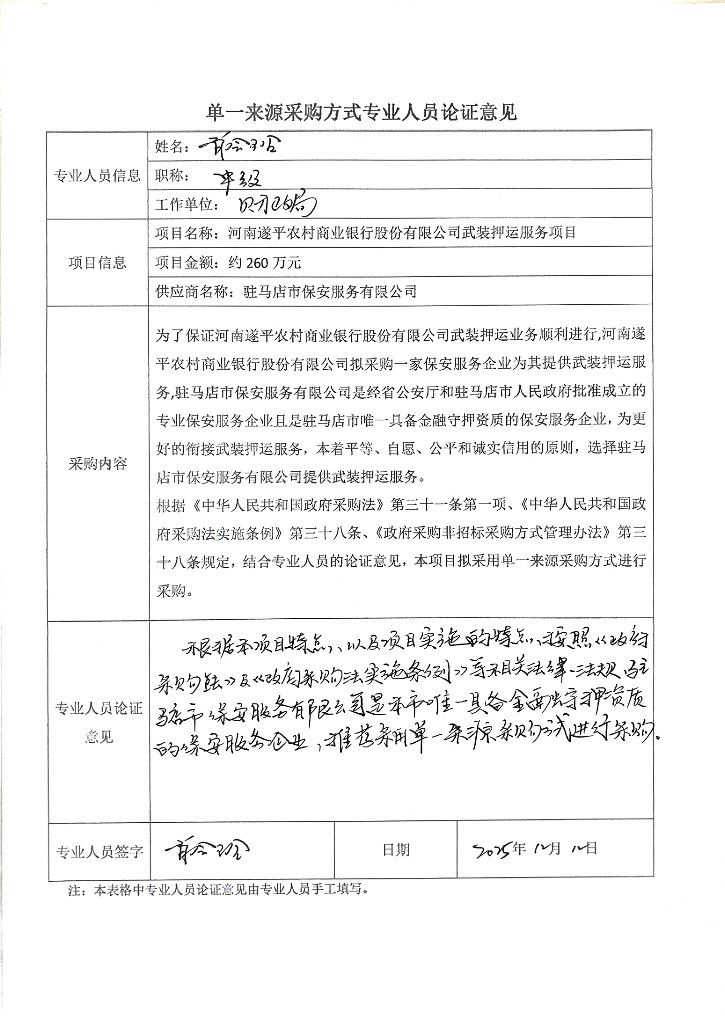 单一来源采购方式专业人员论证意见
专业人员信息
姓名：
职称：中级
工作单位：财政局
项目信息
项目名称：河南遂平农村商业银行股份有限公司武装押运服务项目
项目金额：约 260 万元
供应商名称：驻马店市保安服务有限公司
采购内容
为了保证河南遂平农村商业银行股份有限公司武装押运业务顺利进行,河南遂
平农村商业银行股份有限公司拟采购一家保安服务企业为其提供武装押运服
务,驻马店市保安服务有限公司是经省公安厅和驻马店市人民政府批准成立的
专业保安服务企业且是驻马店市唯一具备金融守押资质的保安服务企业，为更
好的衔接武装押运服务，本着平等、自愿、公平和诚实信用的原则，选择驻马
店市保安服务有限公司提供武装押运服务。
根据《中华人民共和国政府采购法》第三十一条第一项、《中华人民共和国政
府采购法实施条例》第三十八条、《政府采购非招标采购方式管理办法》第三
十八条规定，结合专业人员的论证意见，本项目拟采用单一来源采购方式进行
采购。
专业人员论证
意见
根据本项目特点，以及项目实施的特点，按照《政府
采购法》及《政府采购法实施条例》等相关法律、法规，驻
马店市保安服务有限公司是本市唯一具备金融守押资质
的保安服务企业，推荐采用单一来源采购方式进行采购。
专业人员签字
日期
2025年 12月 12日
注：本表格中专业人员论证意见由专业人员手工填写。